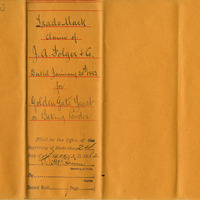 Trade Mark
Claim of
J. A. Folger & Co.
Dated January 20th 1882
for
Golden Gate Yeast
or Baking Powder
Filed in the Office of the
Secretary of State this 2d
day of A.D. 188
Secretary of State
By Deputy
Record Book Page